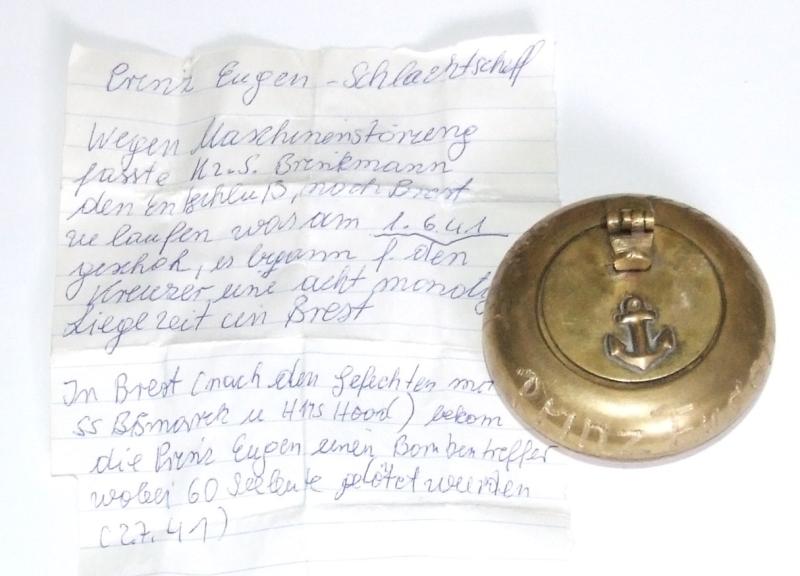 Prinz Eugen - Schlachtschiff
Wegen Maschinenstörung
fasste Kz.S. Brinkmann
den Entschluß, nach Brest
zu laufen was am 1.6.41
geschah, es begann f. den
Kreuzer eine acht monatg
Liegezeit in Brest
In Brest (nach den Gefechten mit
SS Bismarck u HMS Hood) bekam
die Prinz Eugen einen Bombentreffer
wobei 60 Seeleute getötet wurden
(2.7.41)
PRINZ EUGEN